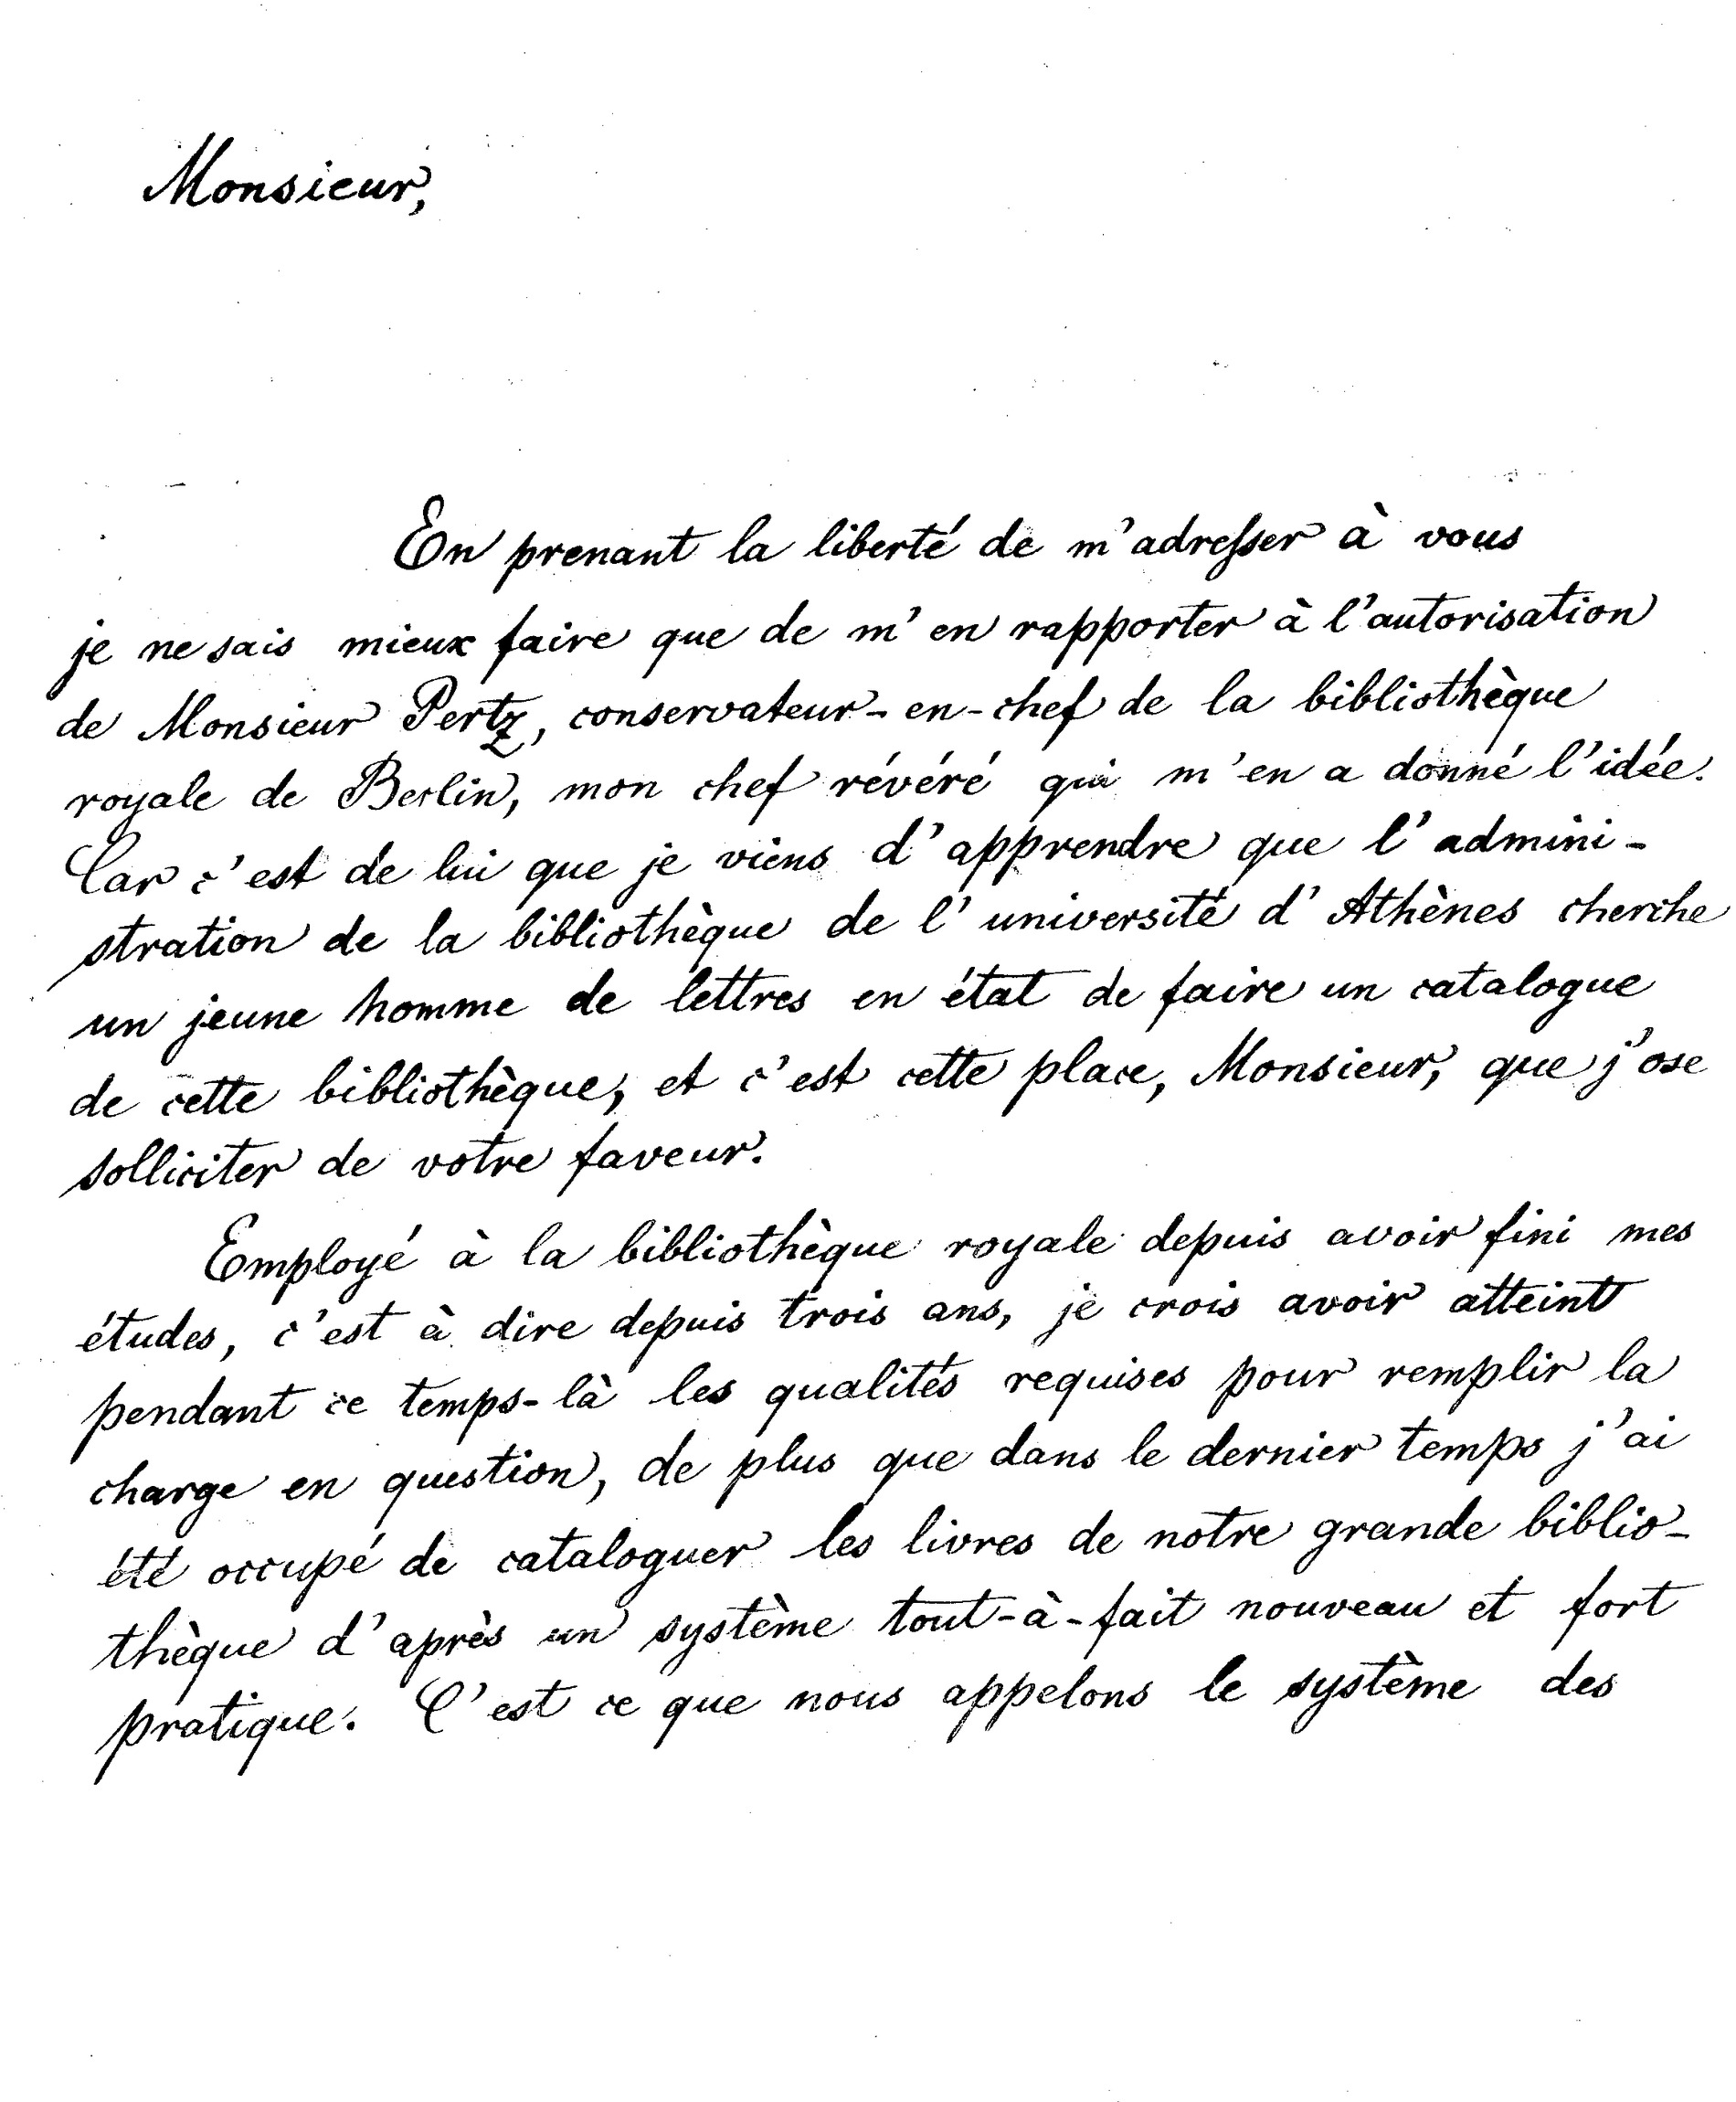 Monsieur,
En prenant la liberté de m'adresser à vous
je ne sais mieux faire que de m'en rapporter à l'autorisation
de Monsieur Pertz, conservateur-en-chef de la bibliothèque
royale de Berlin, mon chef révéré qui m'en a donné l'idée.
Car c'est de lui que je viens d'apprendre que l'admini-
stration de la bibliothèque de l'université d'Athènes cherche
un jeune homme de lettres en état de faire un catalogue
de cette bibliothèque, et c'est cette place, Monsieur, que j'ose
solliciter de votre faveur.
Employé à la bibliothèque royale depuis avoir fini mes
études, c'est à dire depuis trois ans, je crois avoir atteint
pendant ce temps-là les qualités requises pour remplir la
charge en question, de plus que dans le dernier temps j'ai
été occupé de cataloguer les livres de notre grande biblio-
thèque d'après un système tout-à-fait nouveau et fort
pratique. C'est ce que nous appelons le système des